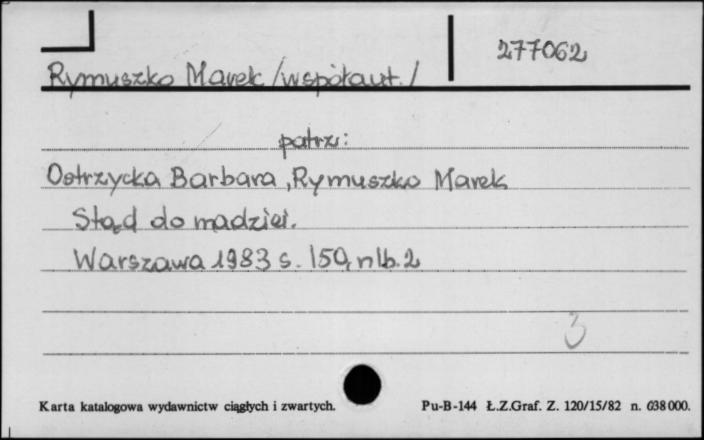 277062
Rymuszko Marek /współaut./
patrz:
Ostrzycka Barbara, Rymuszko Marek
Stąd do nadziei.
Warszawa 1983 s. 150, nlb. 2
3
Karta katalogowa wydawnictw ciągłych i zwartych. Pu-B-144 Ł.Z.Graf. Z. 120/15/82 n. 638000.